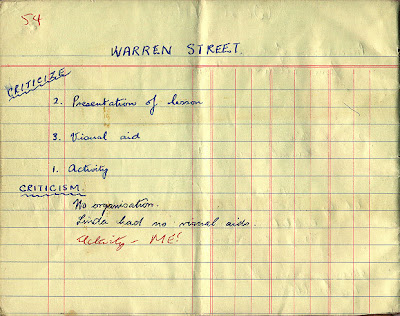 54
WARREN STREET.
CRITICIZE
2. Presentation of lesson
3. Visual aid
1. Activity
CRITICISM.
No organisation.
Linda had no visual aids.
Activity - ME!